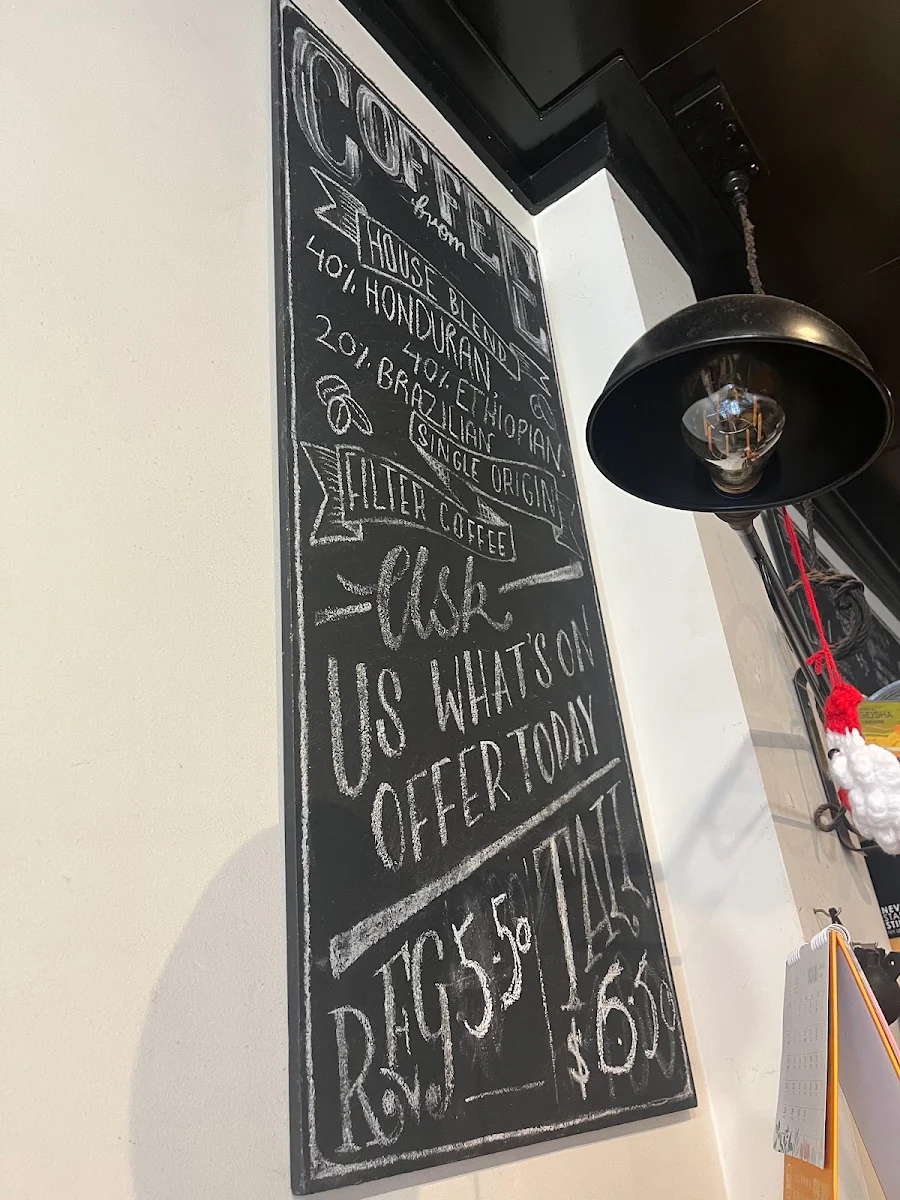 COFFEE
from
HOUSE BLEND
40% HONDURAN,
40% ETHIOPIAN,
20% BRAZILIAN
SINGLE ORIGIN
FILTER COFFEE
Ask
US WHAT'S ON
OFFER TODAY
REG 5.50
TALL
$6.50
GEISHA